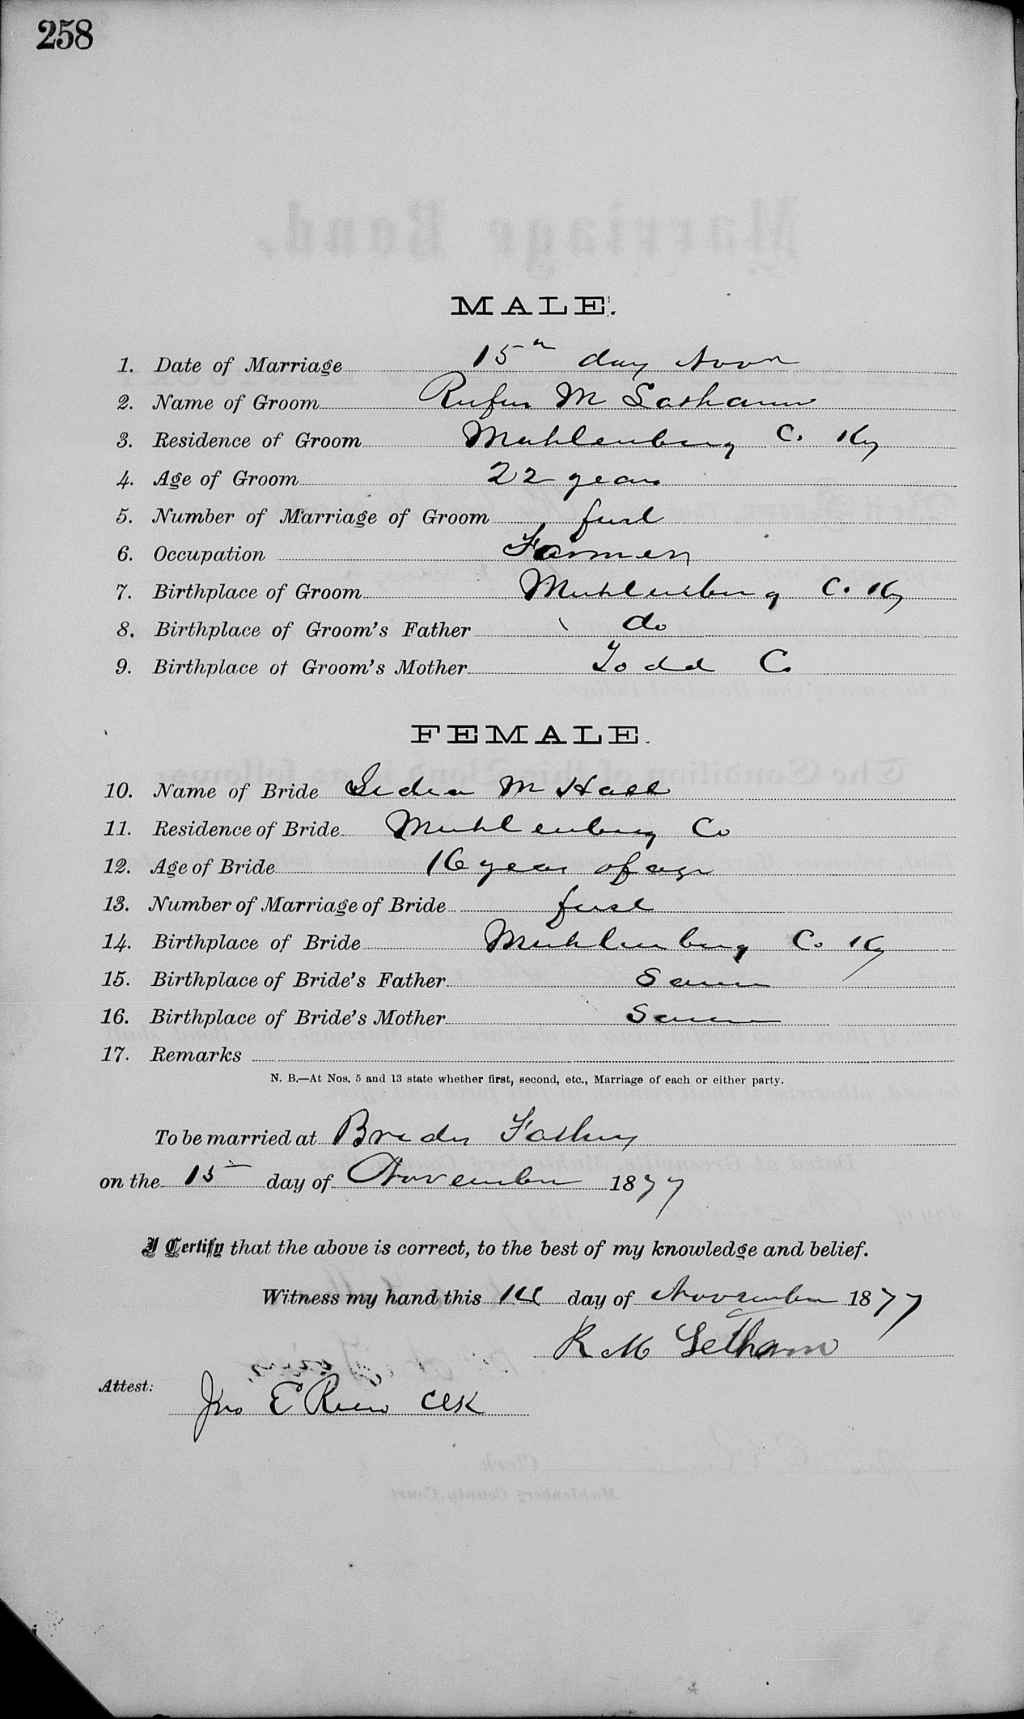 258
MALE.
1. Date of Marriage 15th day Novr
2. Name of Groom Rufus M Latham
3. Residence of Groom Muhlenberg Co Ky
4. Age of Groom 22 years
5. Number of Marriage of Groom first
6. Occupation Farmer
7. Birthplace of Groom Muhlenberg Co Ky
8. Birthplace of Groom's Father do
9. Birthplace of Groom's Mother Todd Co
FEMALE.
10. Name of Bride M Hall
11. Residence of Bride Muhlenberg Co
12. Age of Bride 16 years of age
13. Number of Marriage of Bride first
14. Birthplace of Bride Muhlenberg Co Ky
15. Birthplace of Bride's Father Same
16. Birthplace of Bride's Mother Same
17. Remarks
N. B.—At Nos. 5 and 13 state whether first, second, etc., Marriage of each or either party.
To be married at Brides Fathers
on the 15th day of November 1877
I Certify that the above is correct, to the best of my knowledge and belief.
Witness my hand this 14 day of November 1877
R M Letham
Attest:
Jno E Reno Clk